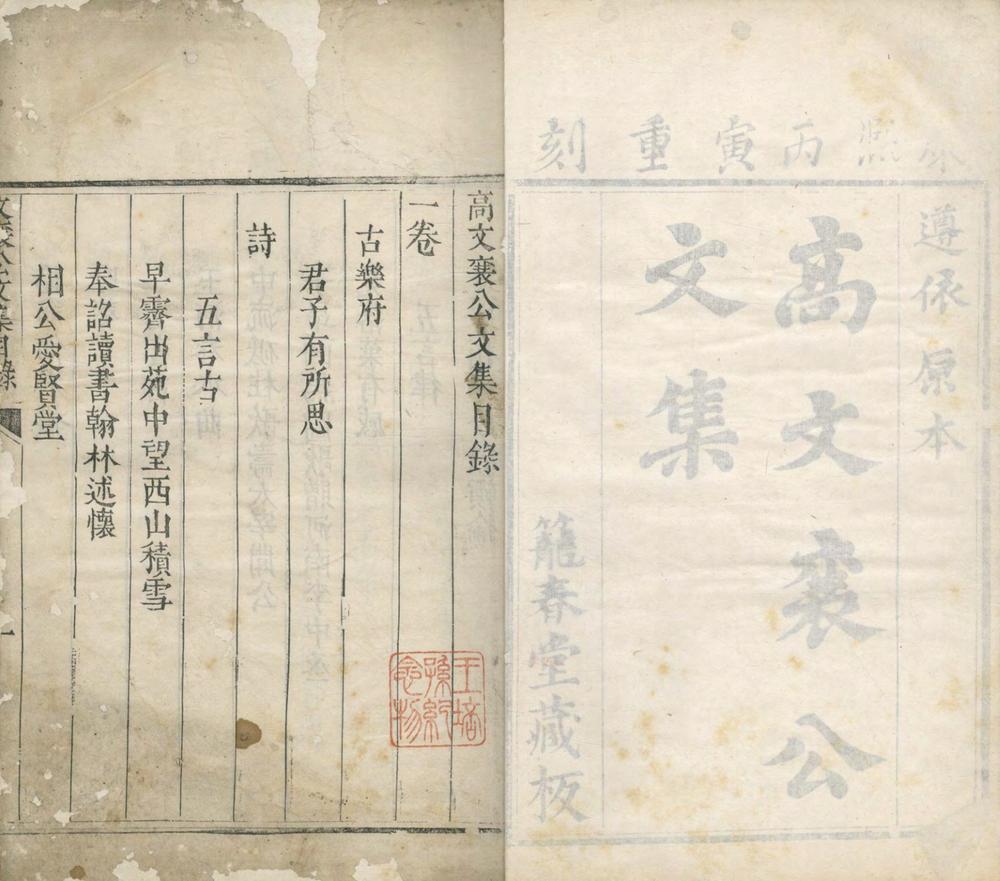 康熙丙寅重刻
遵依原本
高文襄公
文集
籠春堂藏板
高文襄公文集目錄
一卷
古樂府
君子有所思
詩
五言古
早霽出苑中望西山積雪
奉詔讀書翰林述懷
相公愛賢堂
文集目錄
一
王培
孫紀
念物